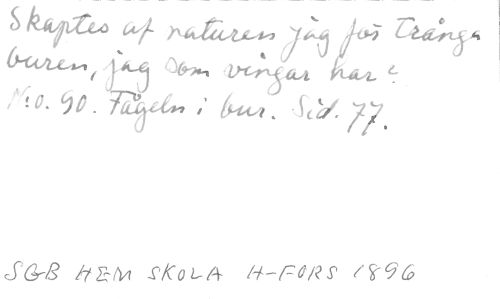 Skaptes af naturen jag för trånga
buren, jag som vingar har?
N:o. 90. Fågeln i bur. Sid. 77.
SGB HEM SKOLA H-FORS 1896